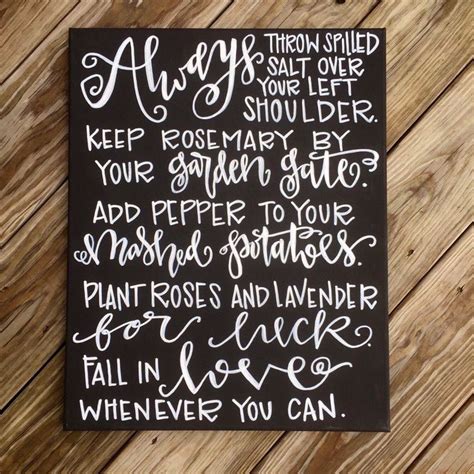 Always THROW SPILLED
SALT OVER
YOUR LEFT
SHOULDER.
KEEP ROSEMARY BY
YOUR garden gate.
ADD PEPPER TO YOUR
mashed potatoes.
PLANT ROSES AND LAVENDER
for luck.
FALL IN love
WHENEVER YOU CAN.